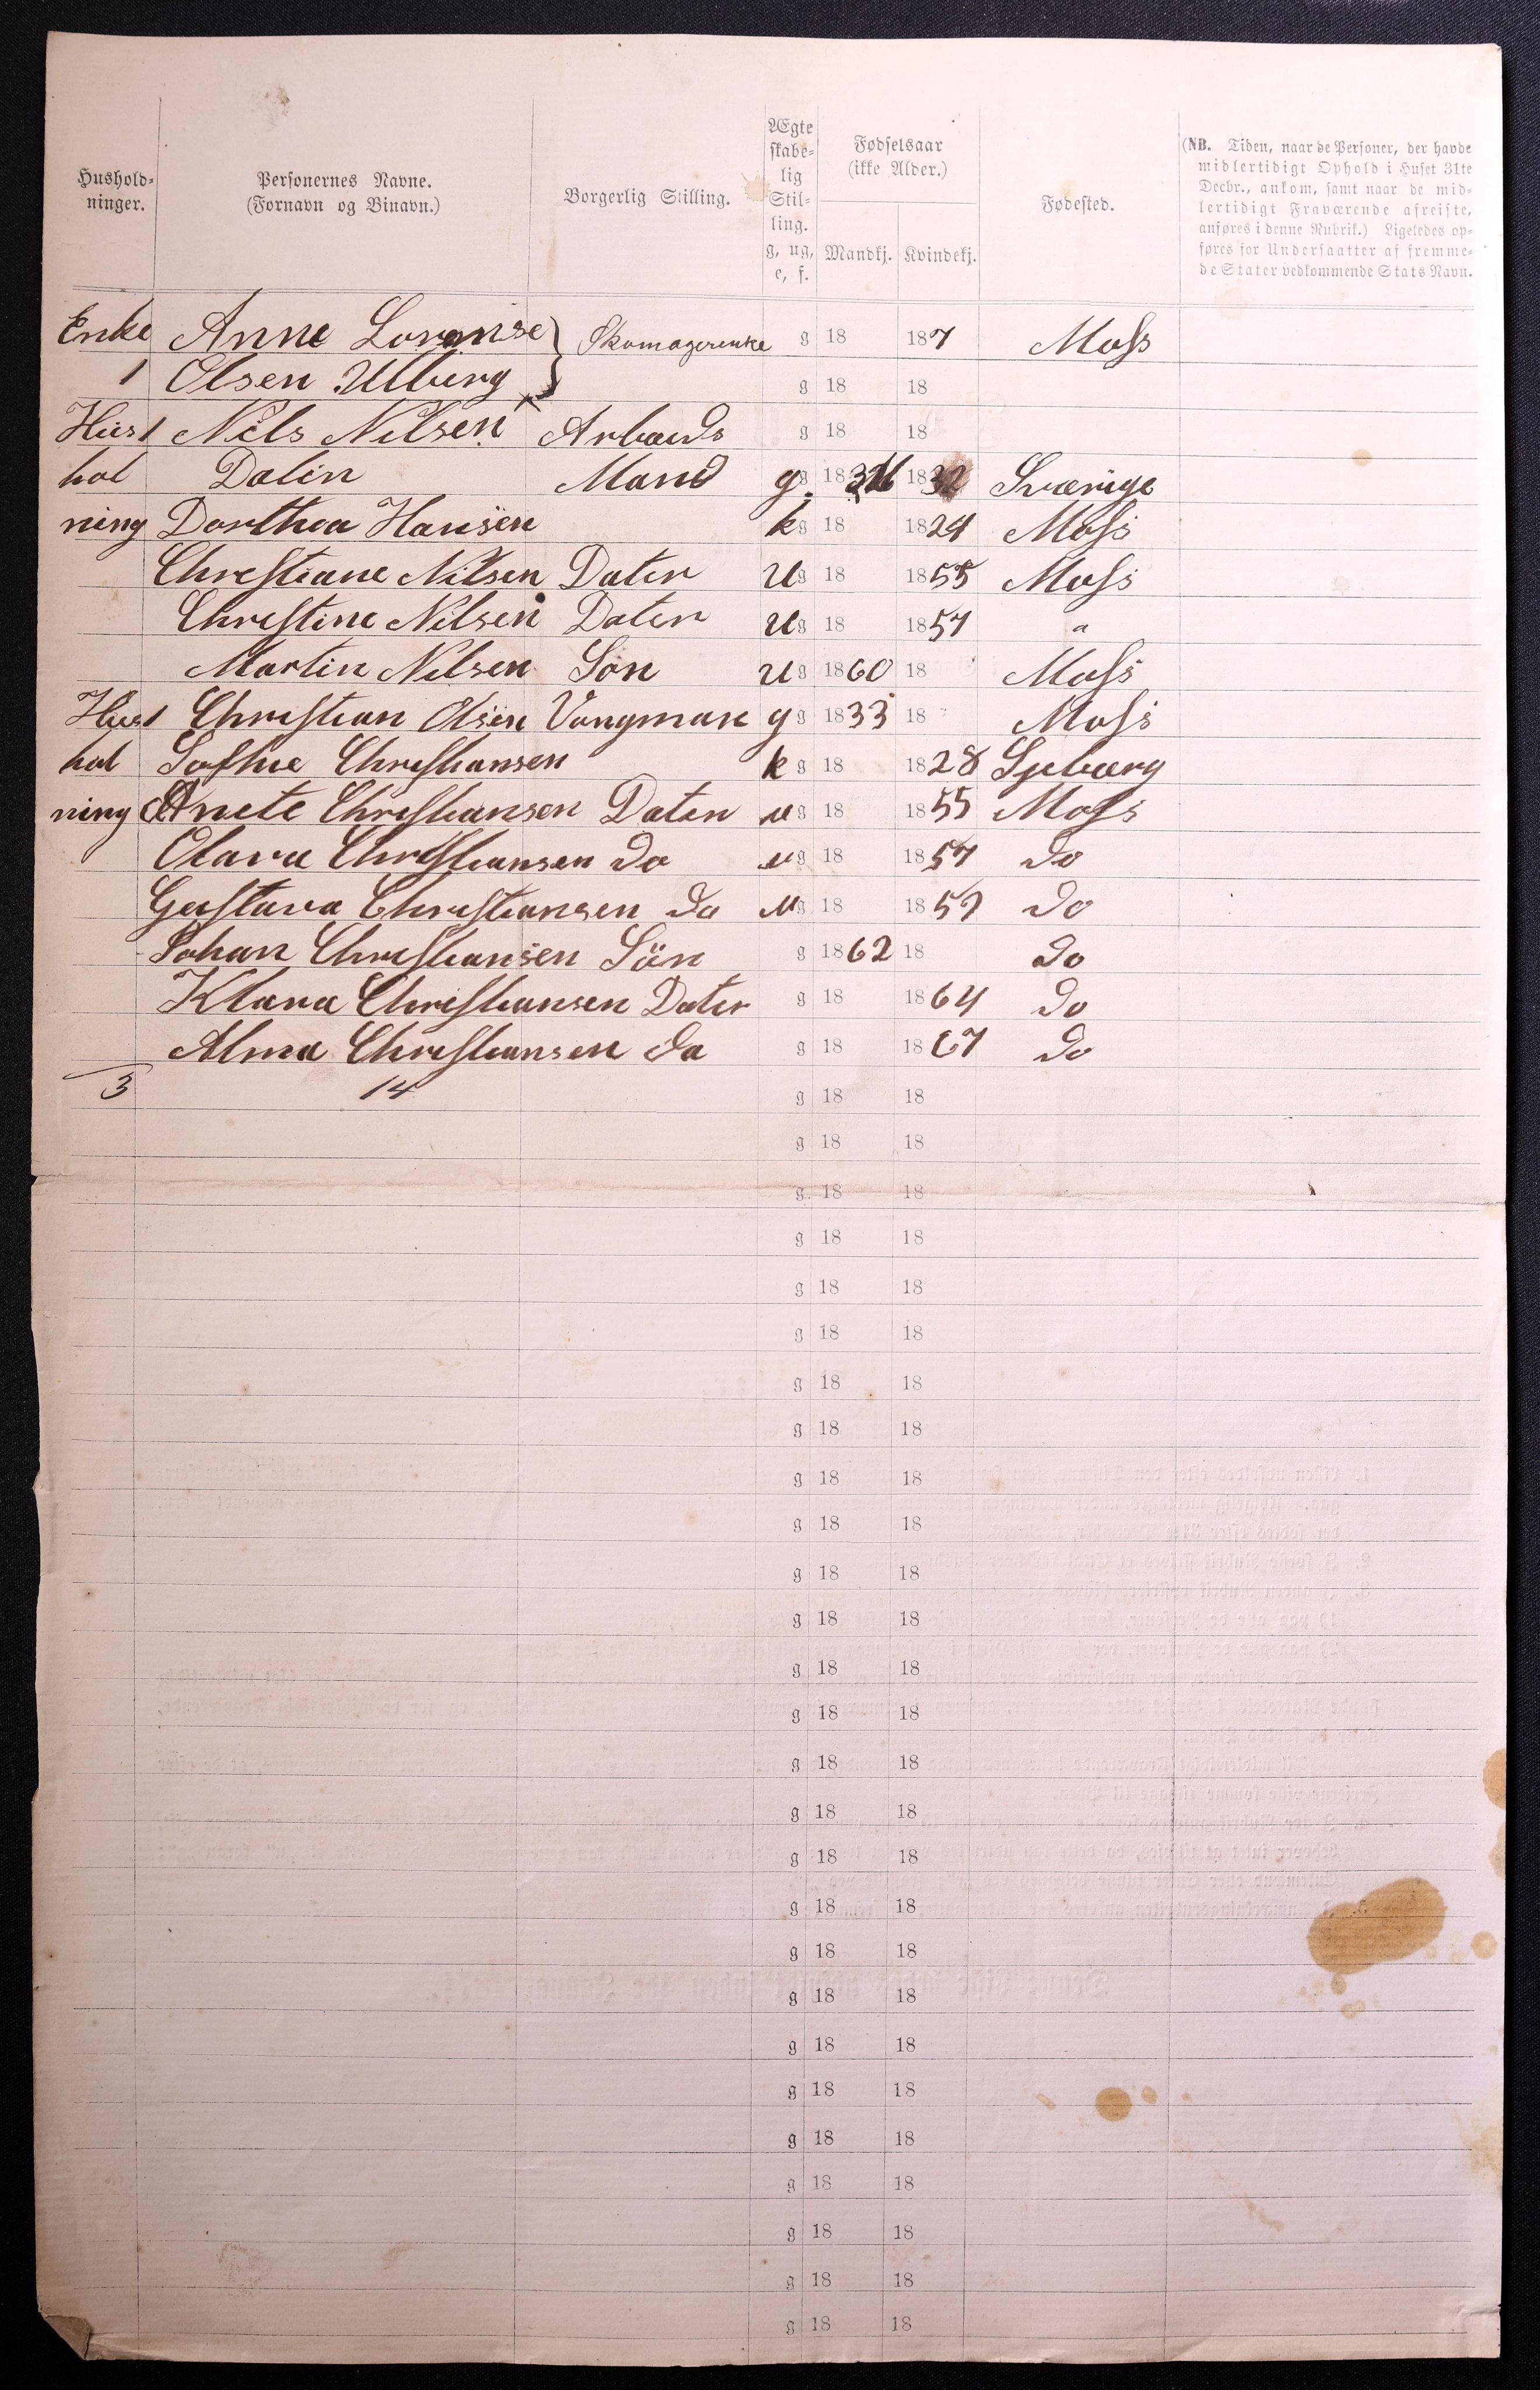 Hushold-
ninger.
Personernes Navne.
(Fornavn og Binavn.)
Borgerlig Stilling.
Ægte
skabe-
lig
Stil-
ling.
g, ug,
e, f.
Fødselsaar
(ikke Alder.)
Mandkj. Kvindekj.
Fødested.
(NB. Tiden, naar de Personer, der havde
midlertidigt Ophold i Huset 31te
Decbr., ankom, samt naar de mid-
lertidigt Fraværende afreiste,
anføres i denne Rubrik.) Ligeledes op-
føres for Undersaatter af fremme-
de Stater vedkommende Stats Navn.
Enke Anne Lovmise } Skomagerenke g 18 187 Moss
1 Olsen Ulberg g 18 18
Hus 1 Nils Nilsen Arbeids g 18 18
hol Dalin Mand g. g 18 18 32 Sverige
ning Dorthea Hansen k g 18 1824 Moss
Christiane Nilsen Dater U g 18 1855 Moss
Christine Nilsen Dater U g 18 1857 "
Martin Nilsen Søn U g 1860 18 Moss
Hus 1 Christian Olsen Vongman g g 1833 18 Moss
hol Sofhie Christiansen k g 18 1828 Sjebærg
ning Anete Christiansen Daten u g 18 1855 Moss
Olava Christiansen do u g 18 1857 Do
Gustava Christiansen do u g 18 1859 Do
Johan Christiansen Sön g 1862 18 Do
Klara Christiansen Dater g 18 1864 Do
Alma Christiansen do g 18 1867 Do
3 14 g 18 18
g 18 18
g 18 18
g 18 18
g 18 18
g 18 18
g 18 18
g 18 18
g 18 18
g 18 18
g 18 18
g 18 18
g 18 18
g 18 18
g 18 18
g 18 18
g 18 18
g 18 18
g 18 18
g 18 18
g 18 18
g 18 18
g 18 18
g 18 18
g 18 18
g 18 18
g 18 18